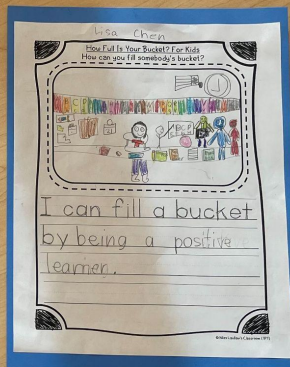 Lisa Chen
How Full Is Your Bucket? For Kids
How can you fill somebody's bucket?
I can fill a bucket
by being a positive
learner.